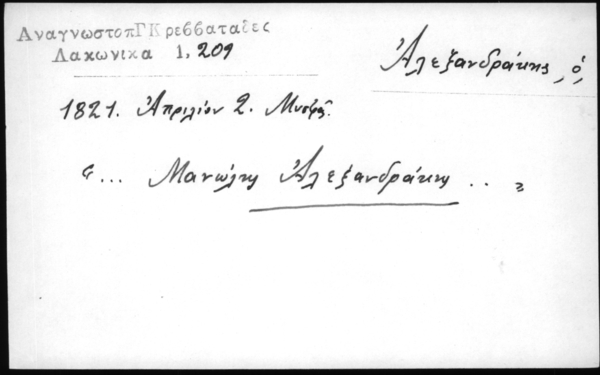 ΑναγνωστοπΓΚρεββαταδες
Λακωνικα 1, 209
Ἀλεξανδράκης, ὁ,
1821. Ἀπριλίου 2. Μυστρᾶ.
«... Μανώλης Ἀλεξανδράκης .. »